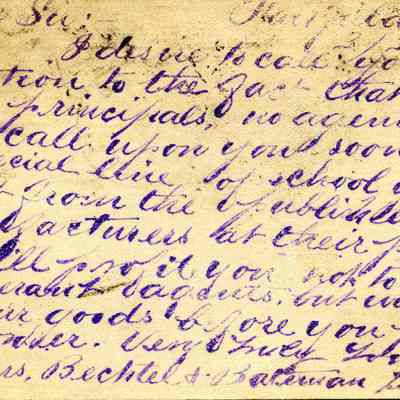 Sir:
I desire to call yo
tion to the fact that
principals, no agen
call upon you soon
cial line of school
from the publishe
facturers at their p
ll profit you not to
erant agents, but
ur goods before you
order. Very Truly
rs. Bechtel & Bateman